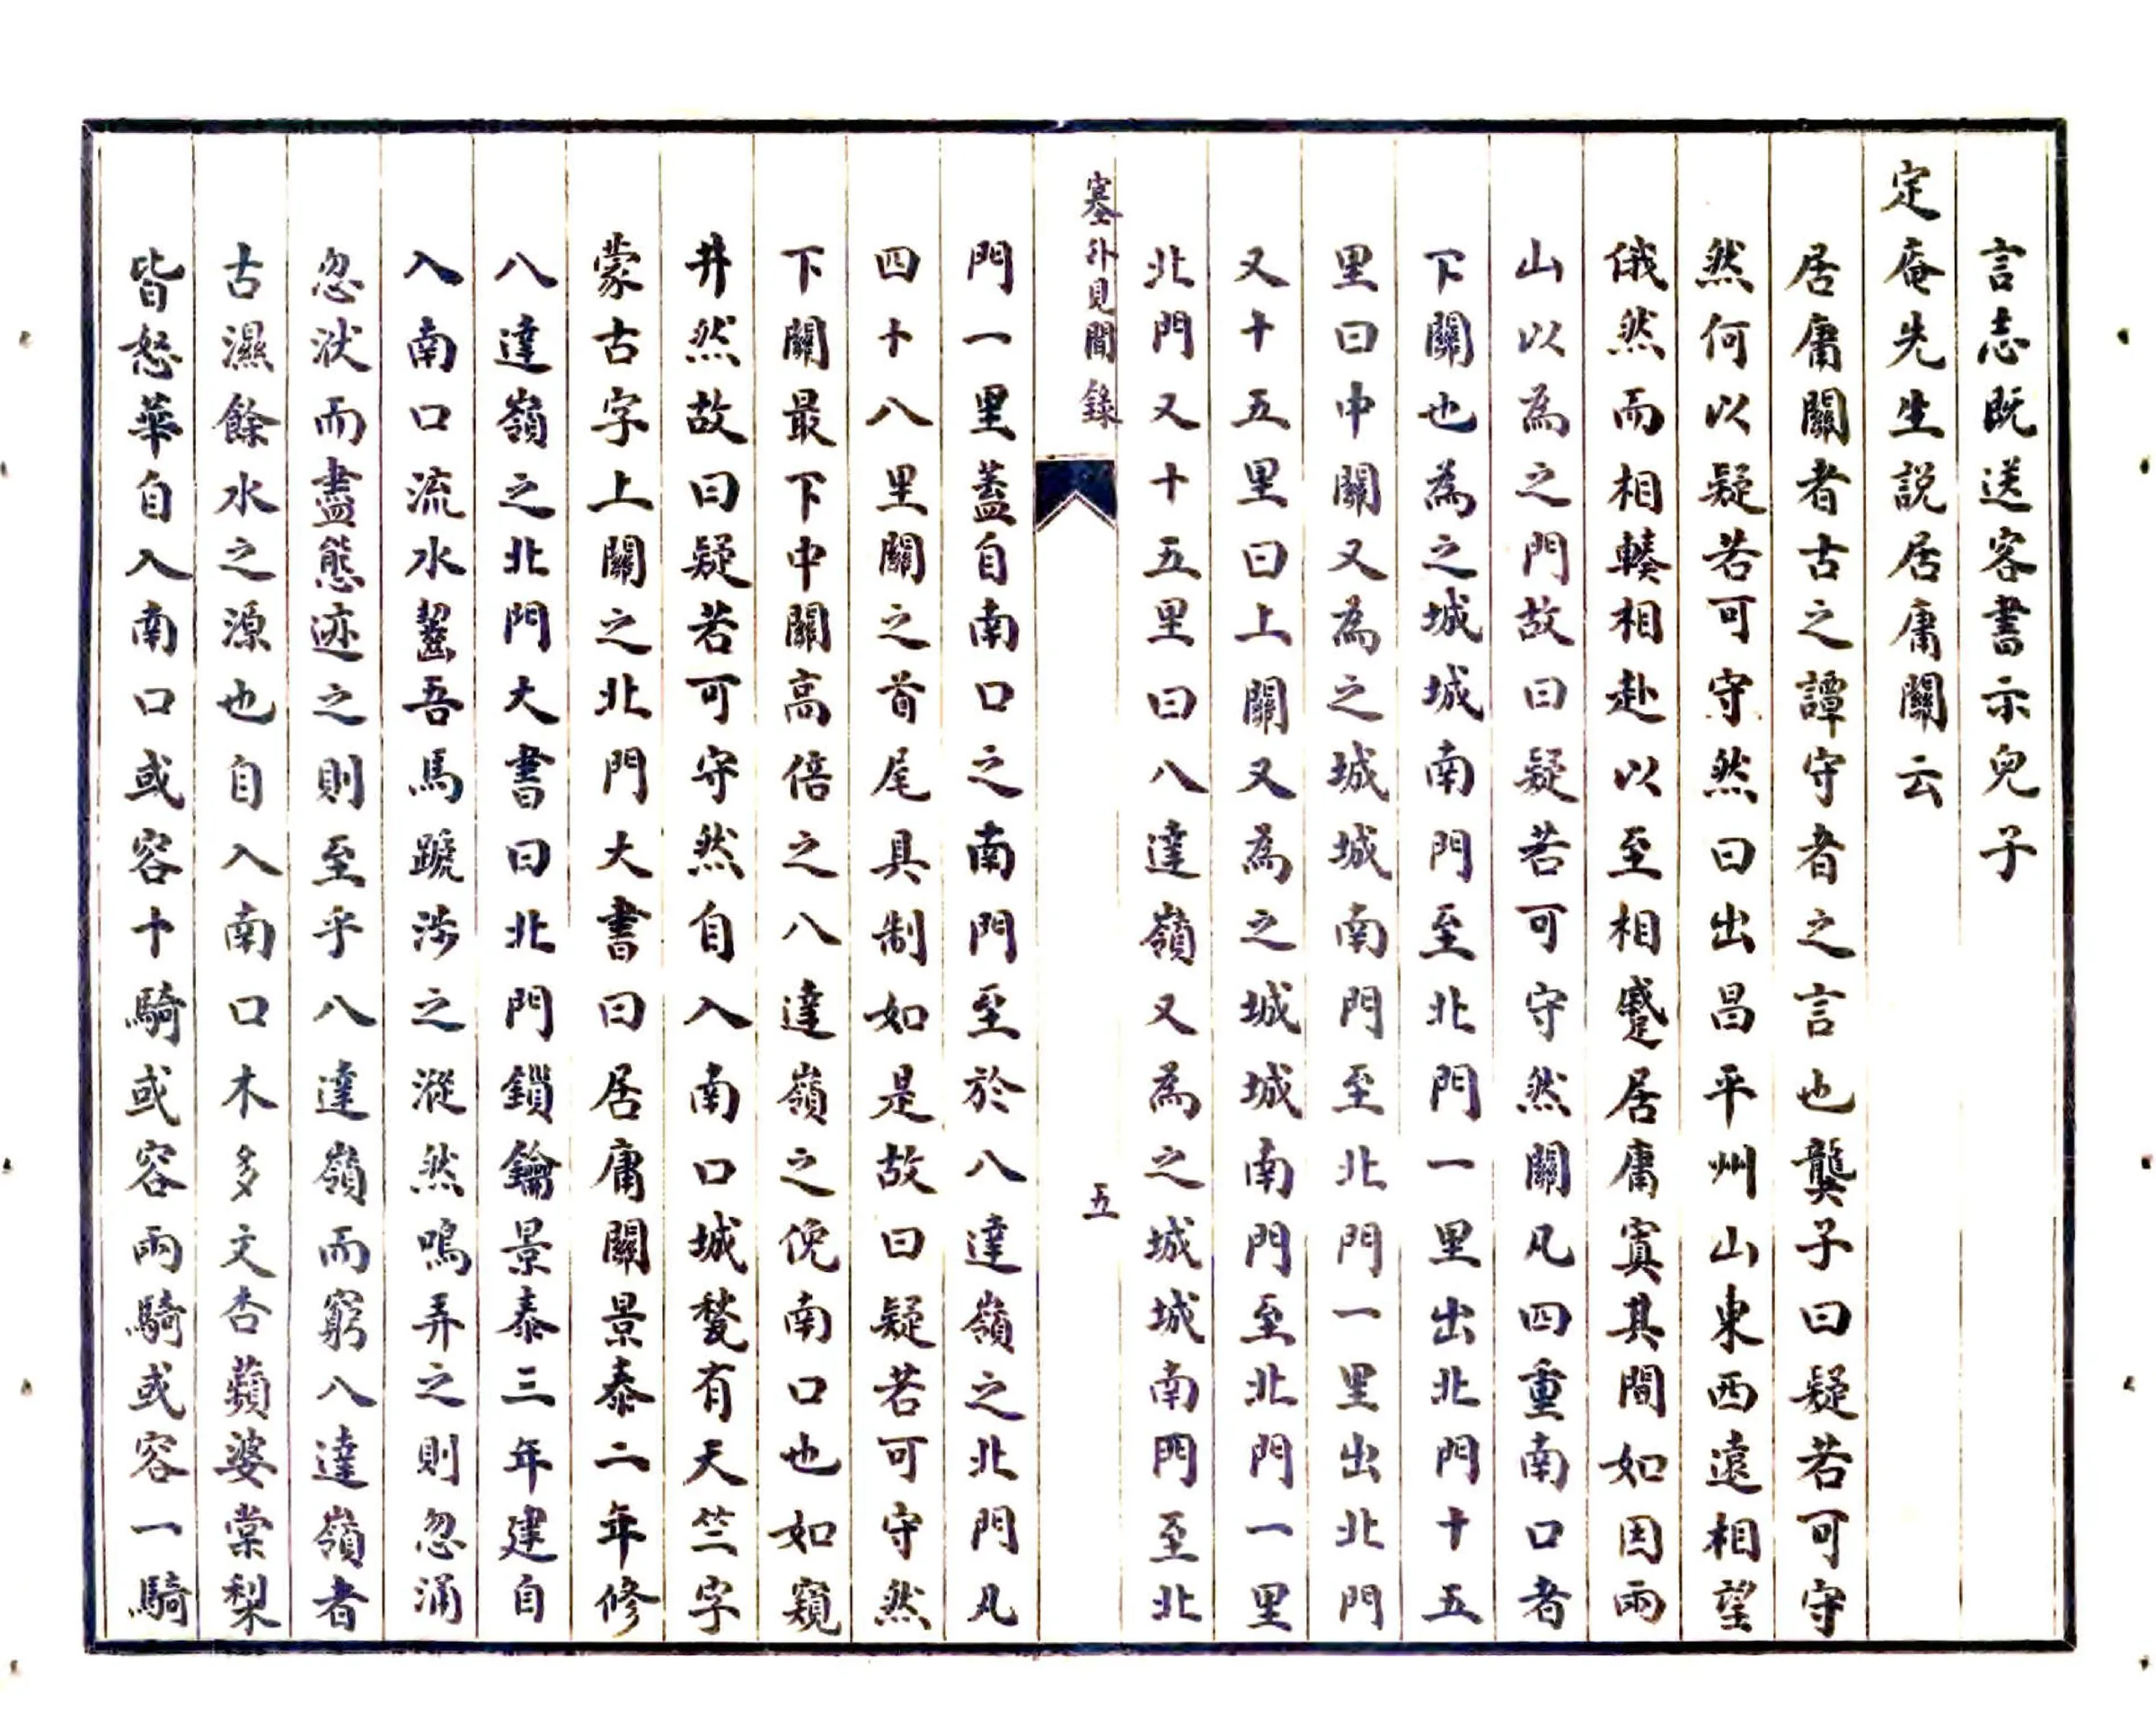 言志既送客書示兒子
定庵先生説居庸關云
居庸關者古之譚守者之言也龔子曰疑若可守
然何以疑若可守然曰出昌平州山東西遠相望
俄然而相輳相赴以至相蹙居庸寘其間如因兩
山以為之門故曰疑若可守然關凡四重南口者
下關也為之城城南門至北門一里出北門十五
里曰中關又為之城城南門至北門一里出北門
又十五里曰上關又為之城城南門至北門一里
北門又十五里曰八達嶺又為之城城南門至北
塞外見聞錄
五
門一里蓋自南口之南門至於八達嶺之北門凡
四十八里關之首尾具制如是故曰疑若可守然
下關最下中關高倍之八達嶺之俛南口也如窺
井然故曰疑若可守然自入南口城甃有天竺字
蒙古字上關之北門大書曰居庸關景泰二年修
八達嶺之北門大書曰北門鎖鑰景泰三年建自
入南口流水齧吾馬蹏涉之漎然鳴弄之則忽涌
忽洑而盡態迹之則至乎八達嶺而窮八達嶺者
古濕餘水之源也自入南口木多文杏蘋婆棠梨
皆怒華自入南口或容十騎或容兩騎或容一騎